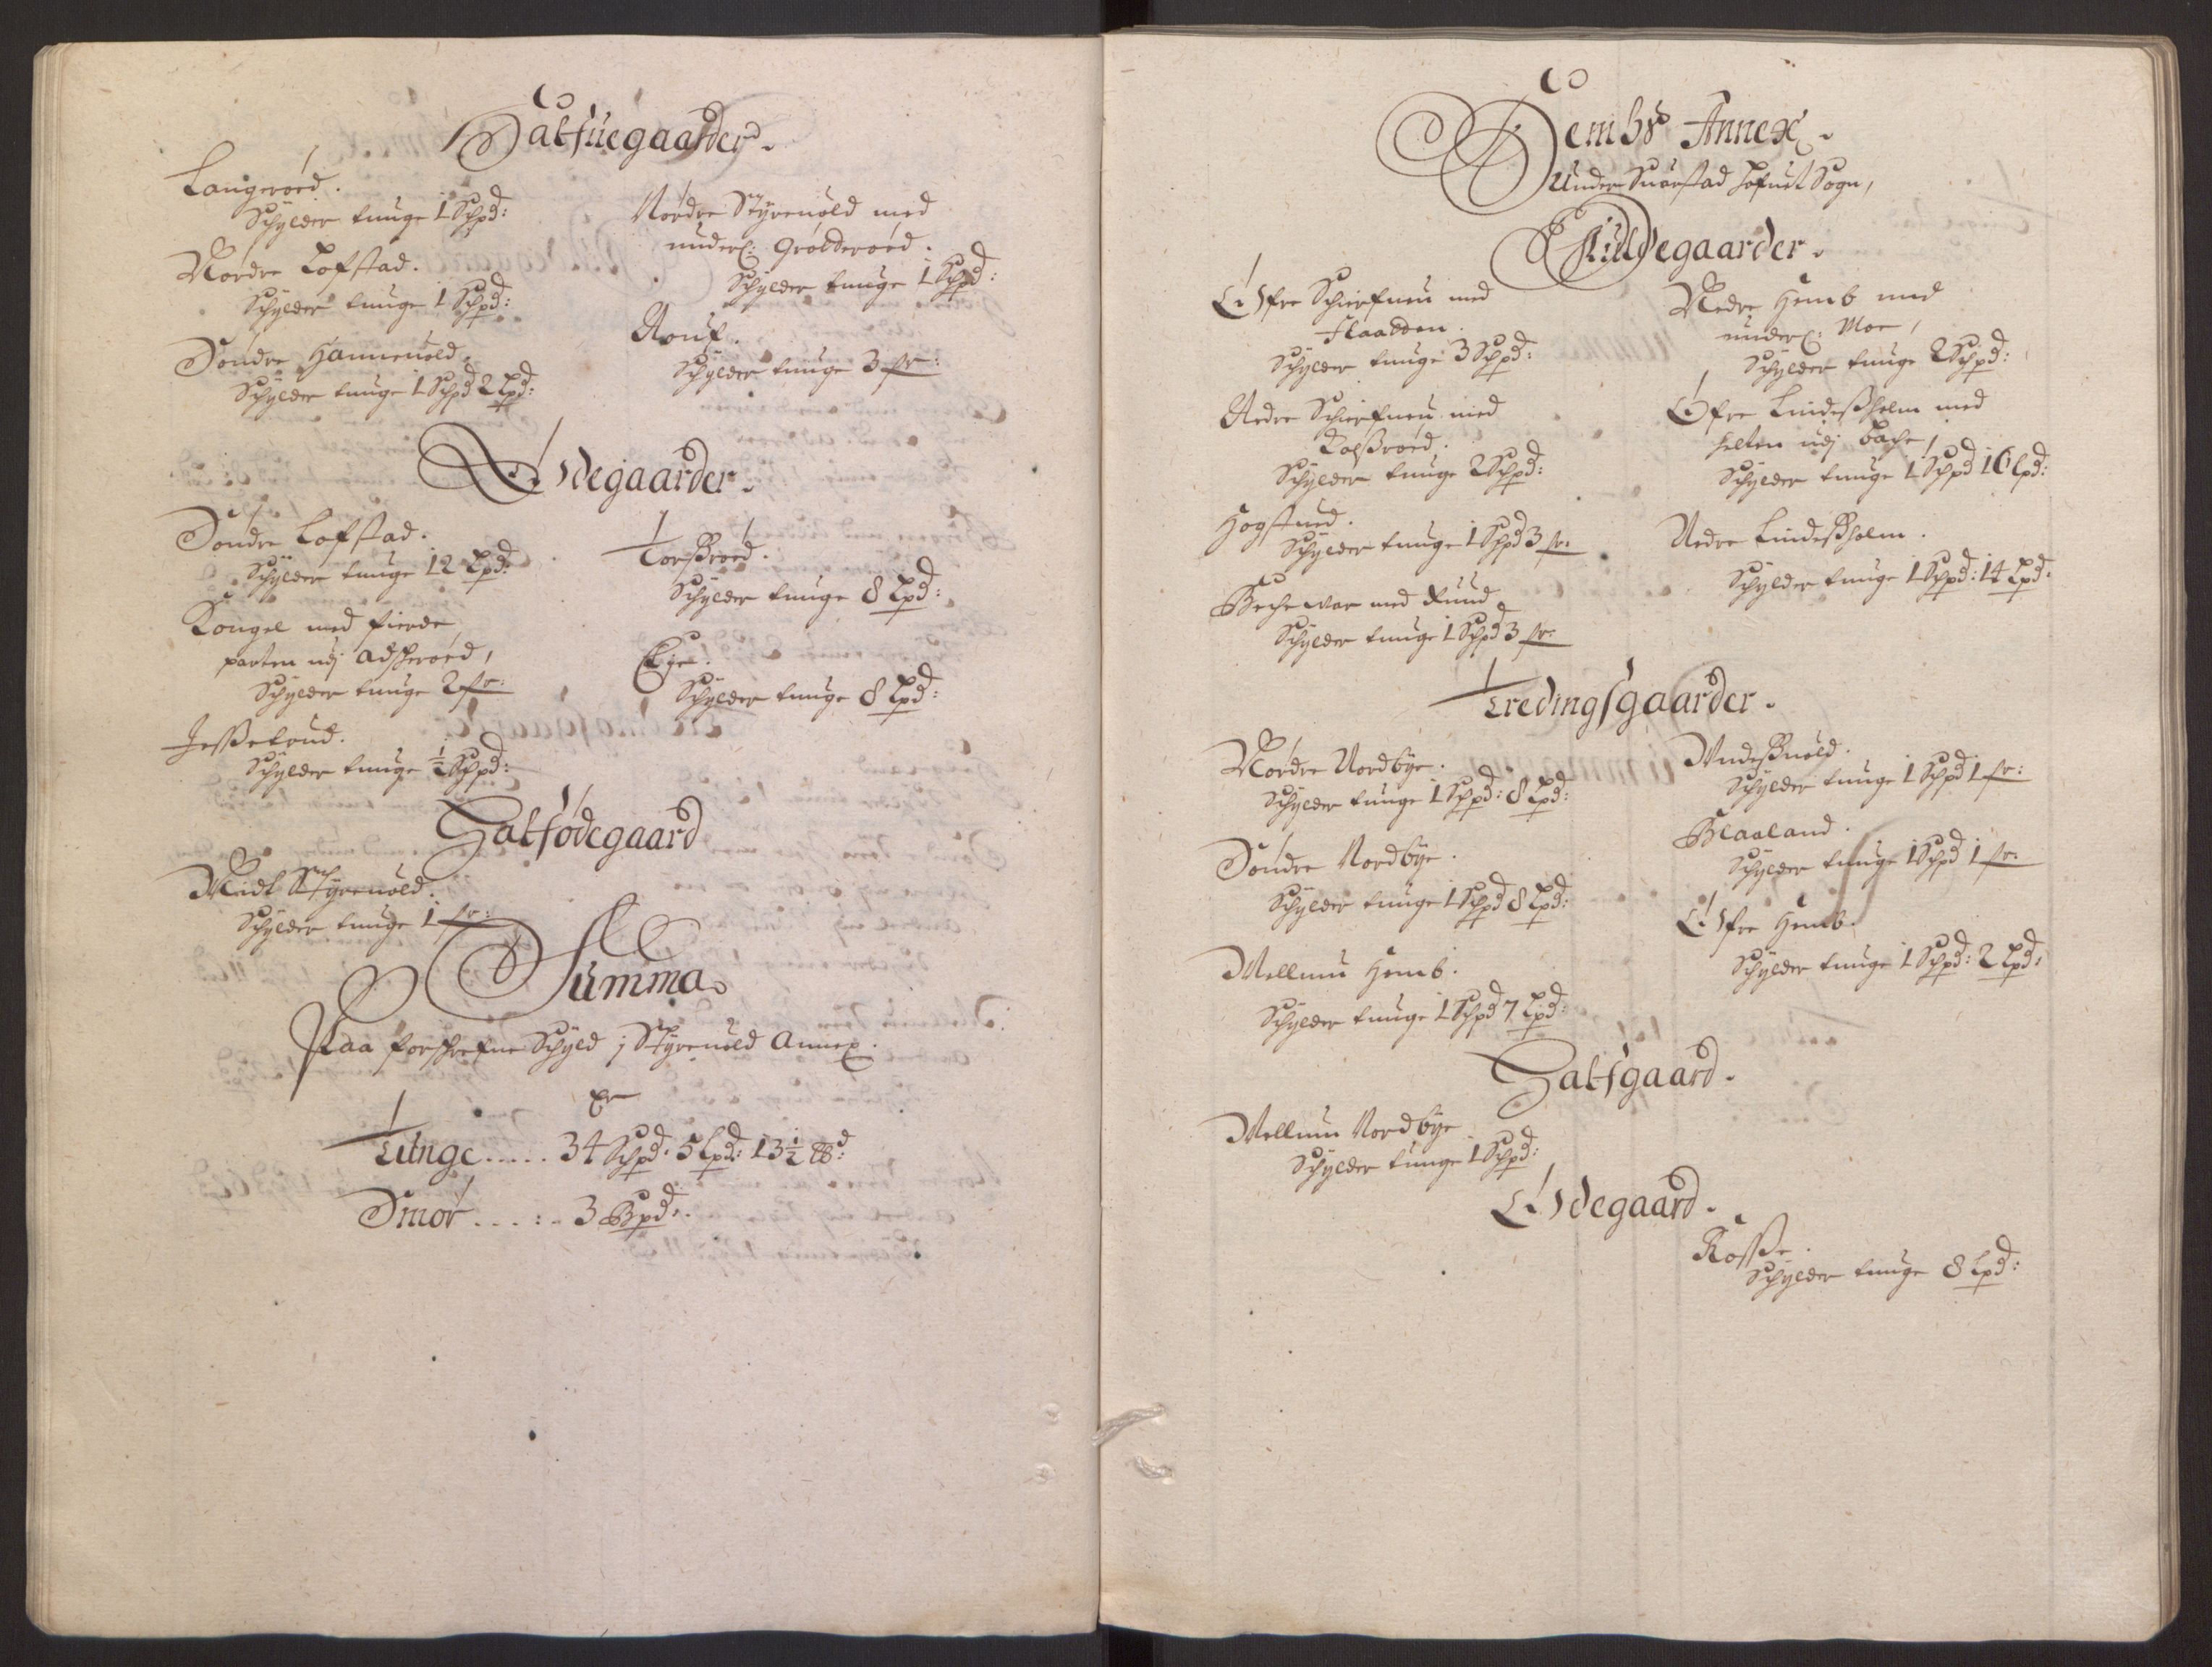 Halfuegaarder.
Langeroed.
Schylder tunge 1 Schpd:
Nordre Lofstad.
Schylder tunge 1 Schpd:
Søndre Hannevold.
Schylder tunge 1 Schpd 2 Lpd:
Nordre Styrevold med
underl: Grøtterød.
Schylder tunge 1 Schpd:
Schylder tunge 3 fr:
Ødegaarder.
Søndre Lofstad.
Schylder tunge 12 Lpd:
Kongel med fierde
parten udj Adskerød,
Schylder tunge 2 fr:
Jesselund.
Schylder tunge ½ Schpd:
Torssrød.
Schylder tunge 8 Lpd:
Schylder tunge 8 Lpd:
Halfødegaard
Midt Styrevold.
Schylder tunge 1 fr:
Summa.
Paa forskrefne Schyld j Styrevold Annex.
er
Tunge ..... 34 Schpd. 5 Lpd: 13½ ℔:
Smør ..... 3 Bpd:.
Hembs Annex.
Under Suarstad hofuet Sogn,
Fuldegaarder.
Øfre Schierfuen med
Flaadden.
Schylder tunge 3 Schpd:
Nedre Schierfuen med
Rolssrød.
Schylder tunge 2 Schpd:
Hogstued.
Schylder tunge 1 Schpd 3 fr:
med Rund
Schylder tunge 1 Schpd 3 fr:
Nedre Hemb med
underl: Moe,
Schylder tunge 2 Schpd:
Øfre Lindessholm med
helten udj Bache
Schylder tunge 1 Schpd 16 Lpd:
Nedre Lindessholm.
Schylder tunge 1 Schpd: 14 Lpd:
Tredingsgaarder.
Nordre Nordbye.
Schylder tunge 1 Schpd: 8 Lpd:
Søndre Nordbye.
Schylder tunge 1 Schpd 8 Lpd:
Mellum Hemb.
Schylder tunge 1 Schpd 7 Lpd:
Vndessuold.
Schylder tunge 1 Schpd 1 fr:
Blaaland.
Schylder tunge 1 Schpd 1 fr:
Øfre Hemb.
Schylder tunge 1 Schpd: 2 Lpd:
Halfgaard.
Mellum Nordbye
Schylder tunge 1 Schpd:
Ødegaard.
Rosse.
Schylder tunge 8 Lpd: